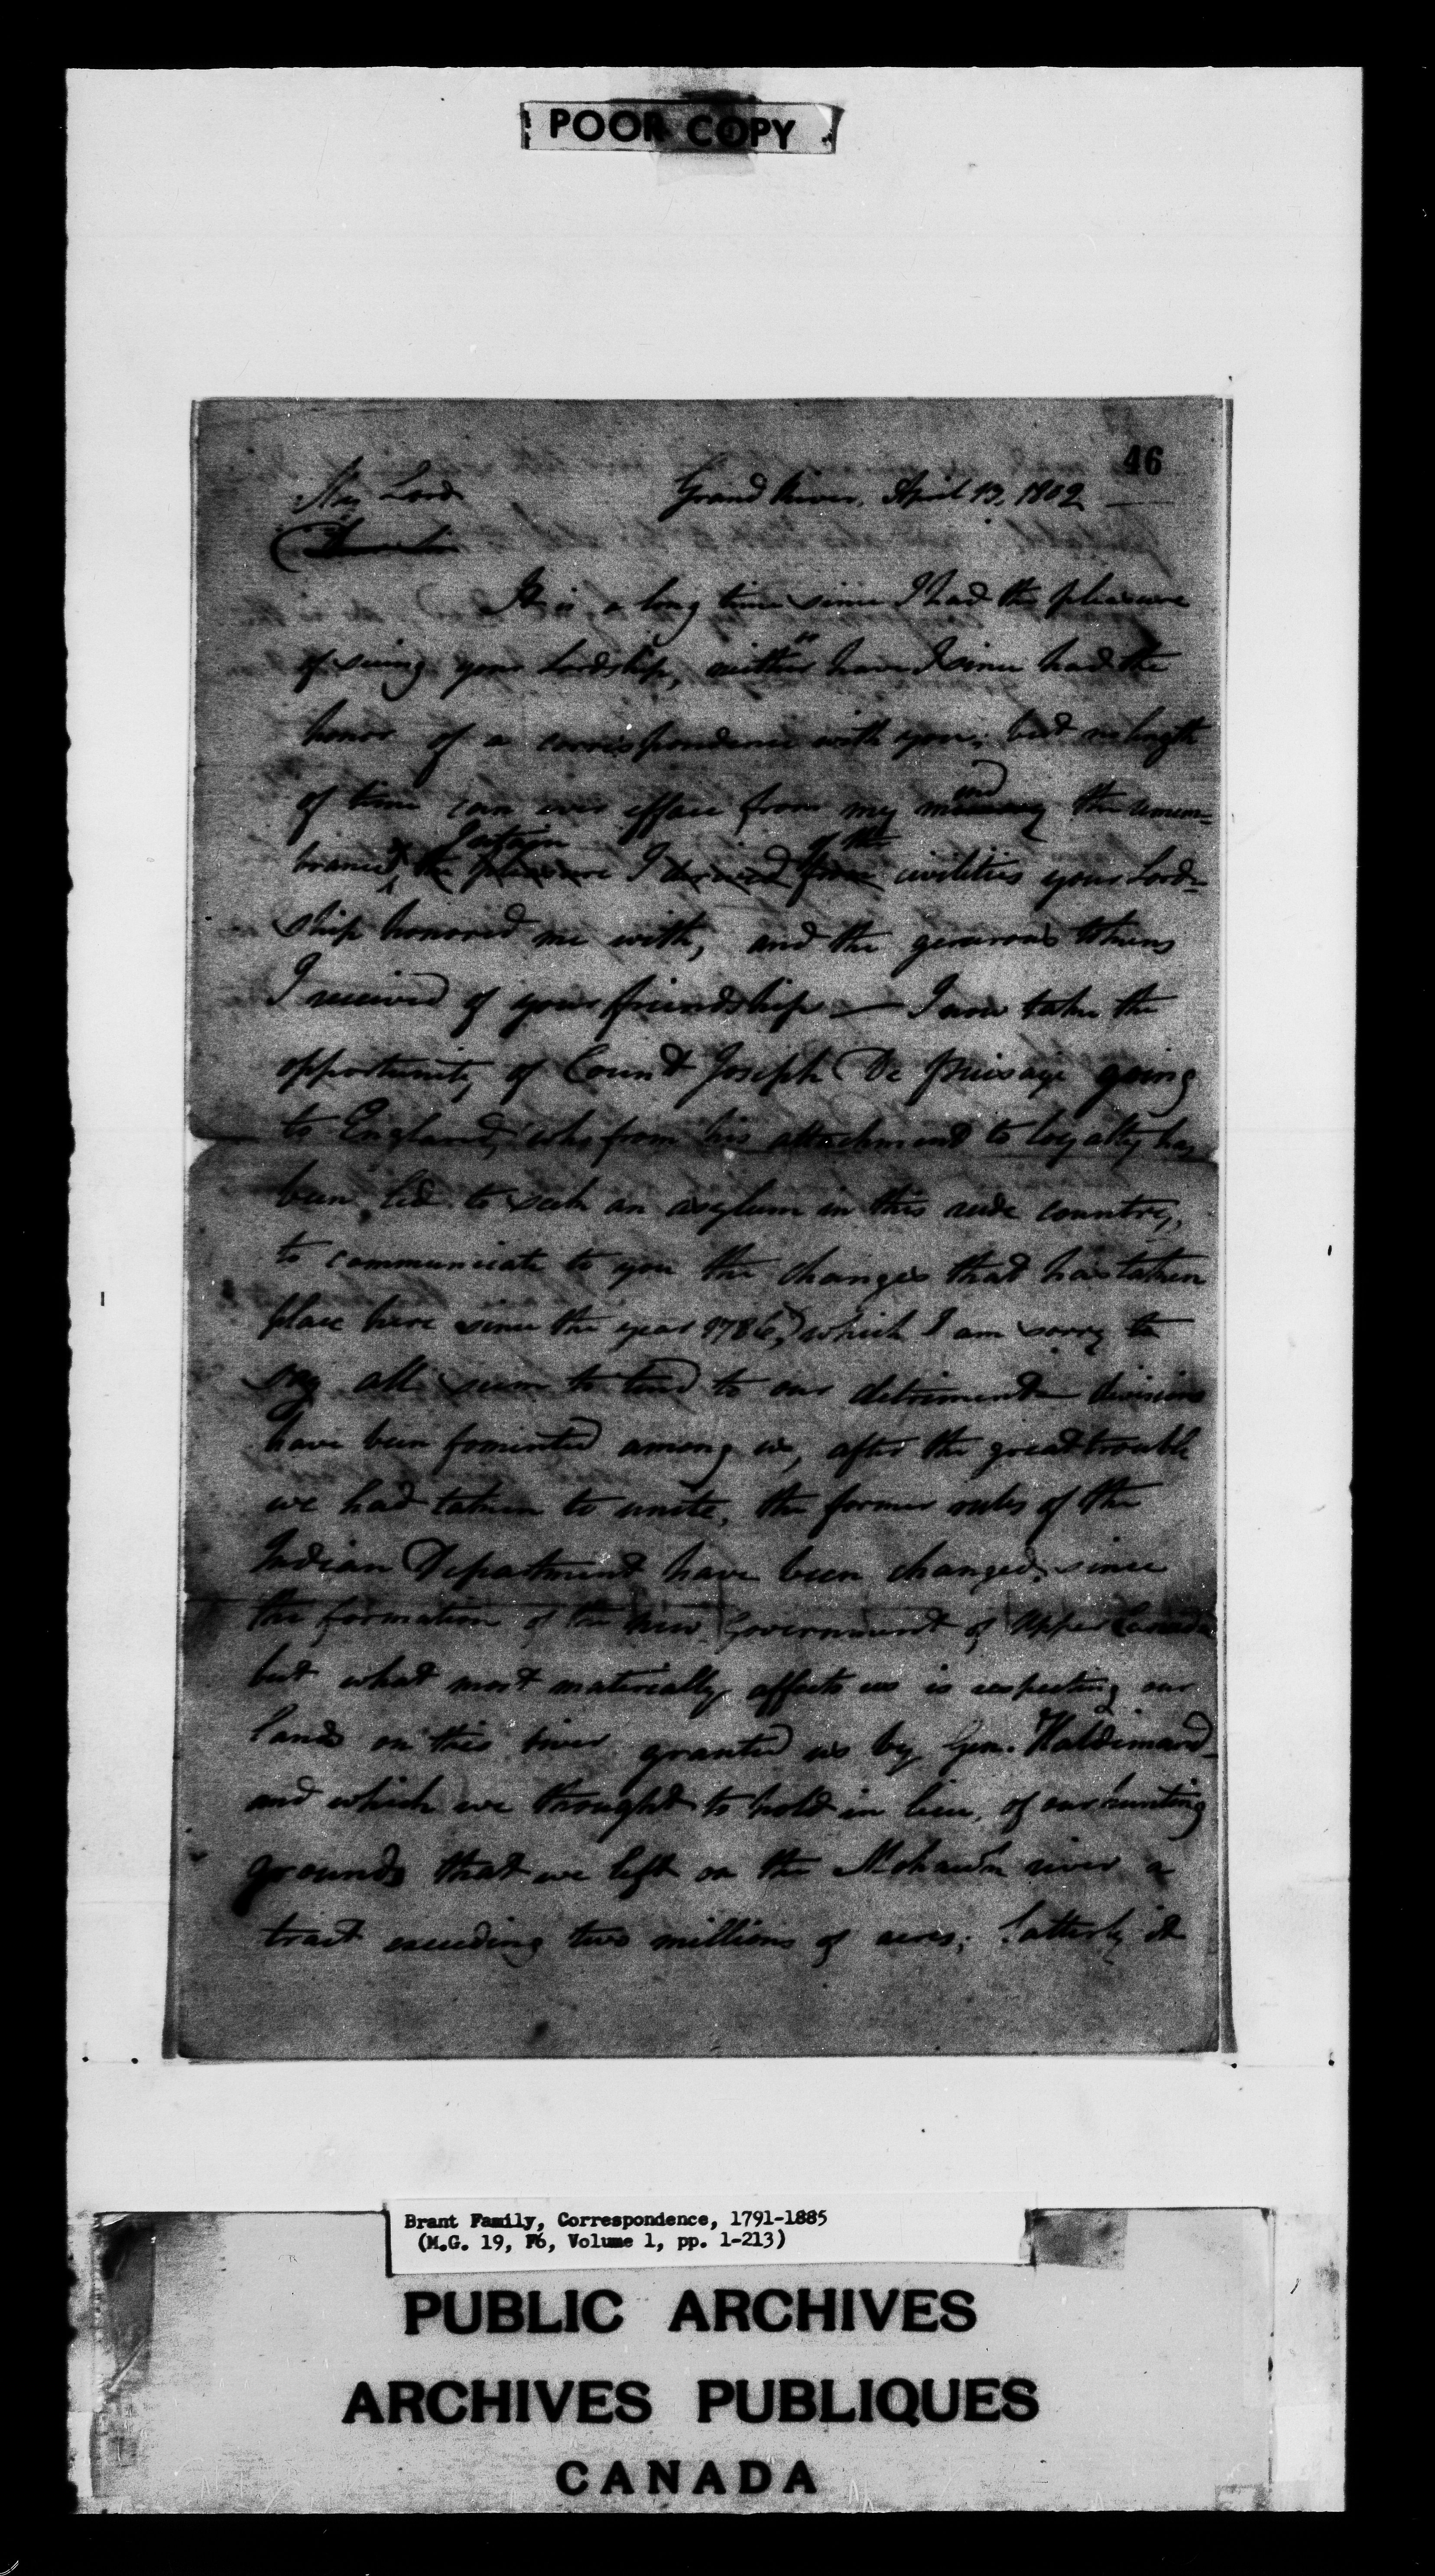 POOR COPY
46
My Lord Grand River, April 13, 1802
It is a long time since I had the pleasure
of seeing your Lordship, neither have I since had the
honor of a correspondence with you; but no length
of time can ever efface from my mind the remem=
brance, the pleasure I derived from of the civilities your Lord=
ship honored me with, and the generous tokens
I received of your friendship — I now take the
opportunity of Count Joseph De Puisaye going
to England, who from his attachment to loyalty has
been led to seek an asylum in this rude country,
to communicate to you the changes that has taken
place here since the year 1786, which I am sorry to
say all seem to tend to our detriment divisions
have been fomented among us, after the great trouble
we had taken to unite, the former rules of the
Indian Department have been changed, since
the formation of the new Government of Upper Canada
but what most materially affects us is respecting our
lands on this river granted us by Gen. Haldimand
and which we thought to hold in lieu, of our hunting
grounds that we left on the Mohawk river a
tract exceeding two millions of acres; Latterly it
Brant Family, Correspondence, 1791-1885
(M.G. 19, F6, Volume 1, pp. 1-213)
PUBLIC ARCHIVES
ARCHIVES PUBLIQUES
CANADA